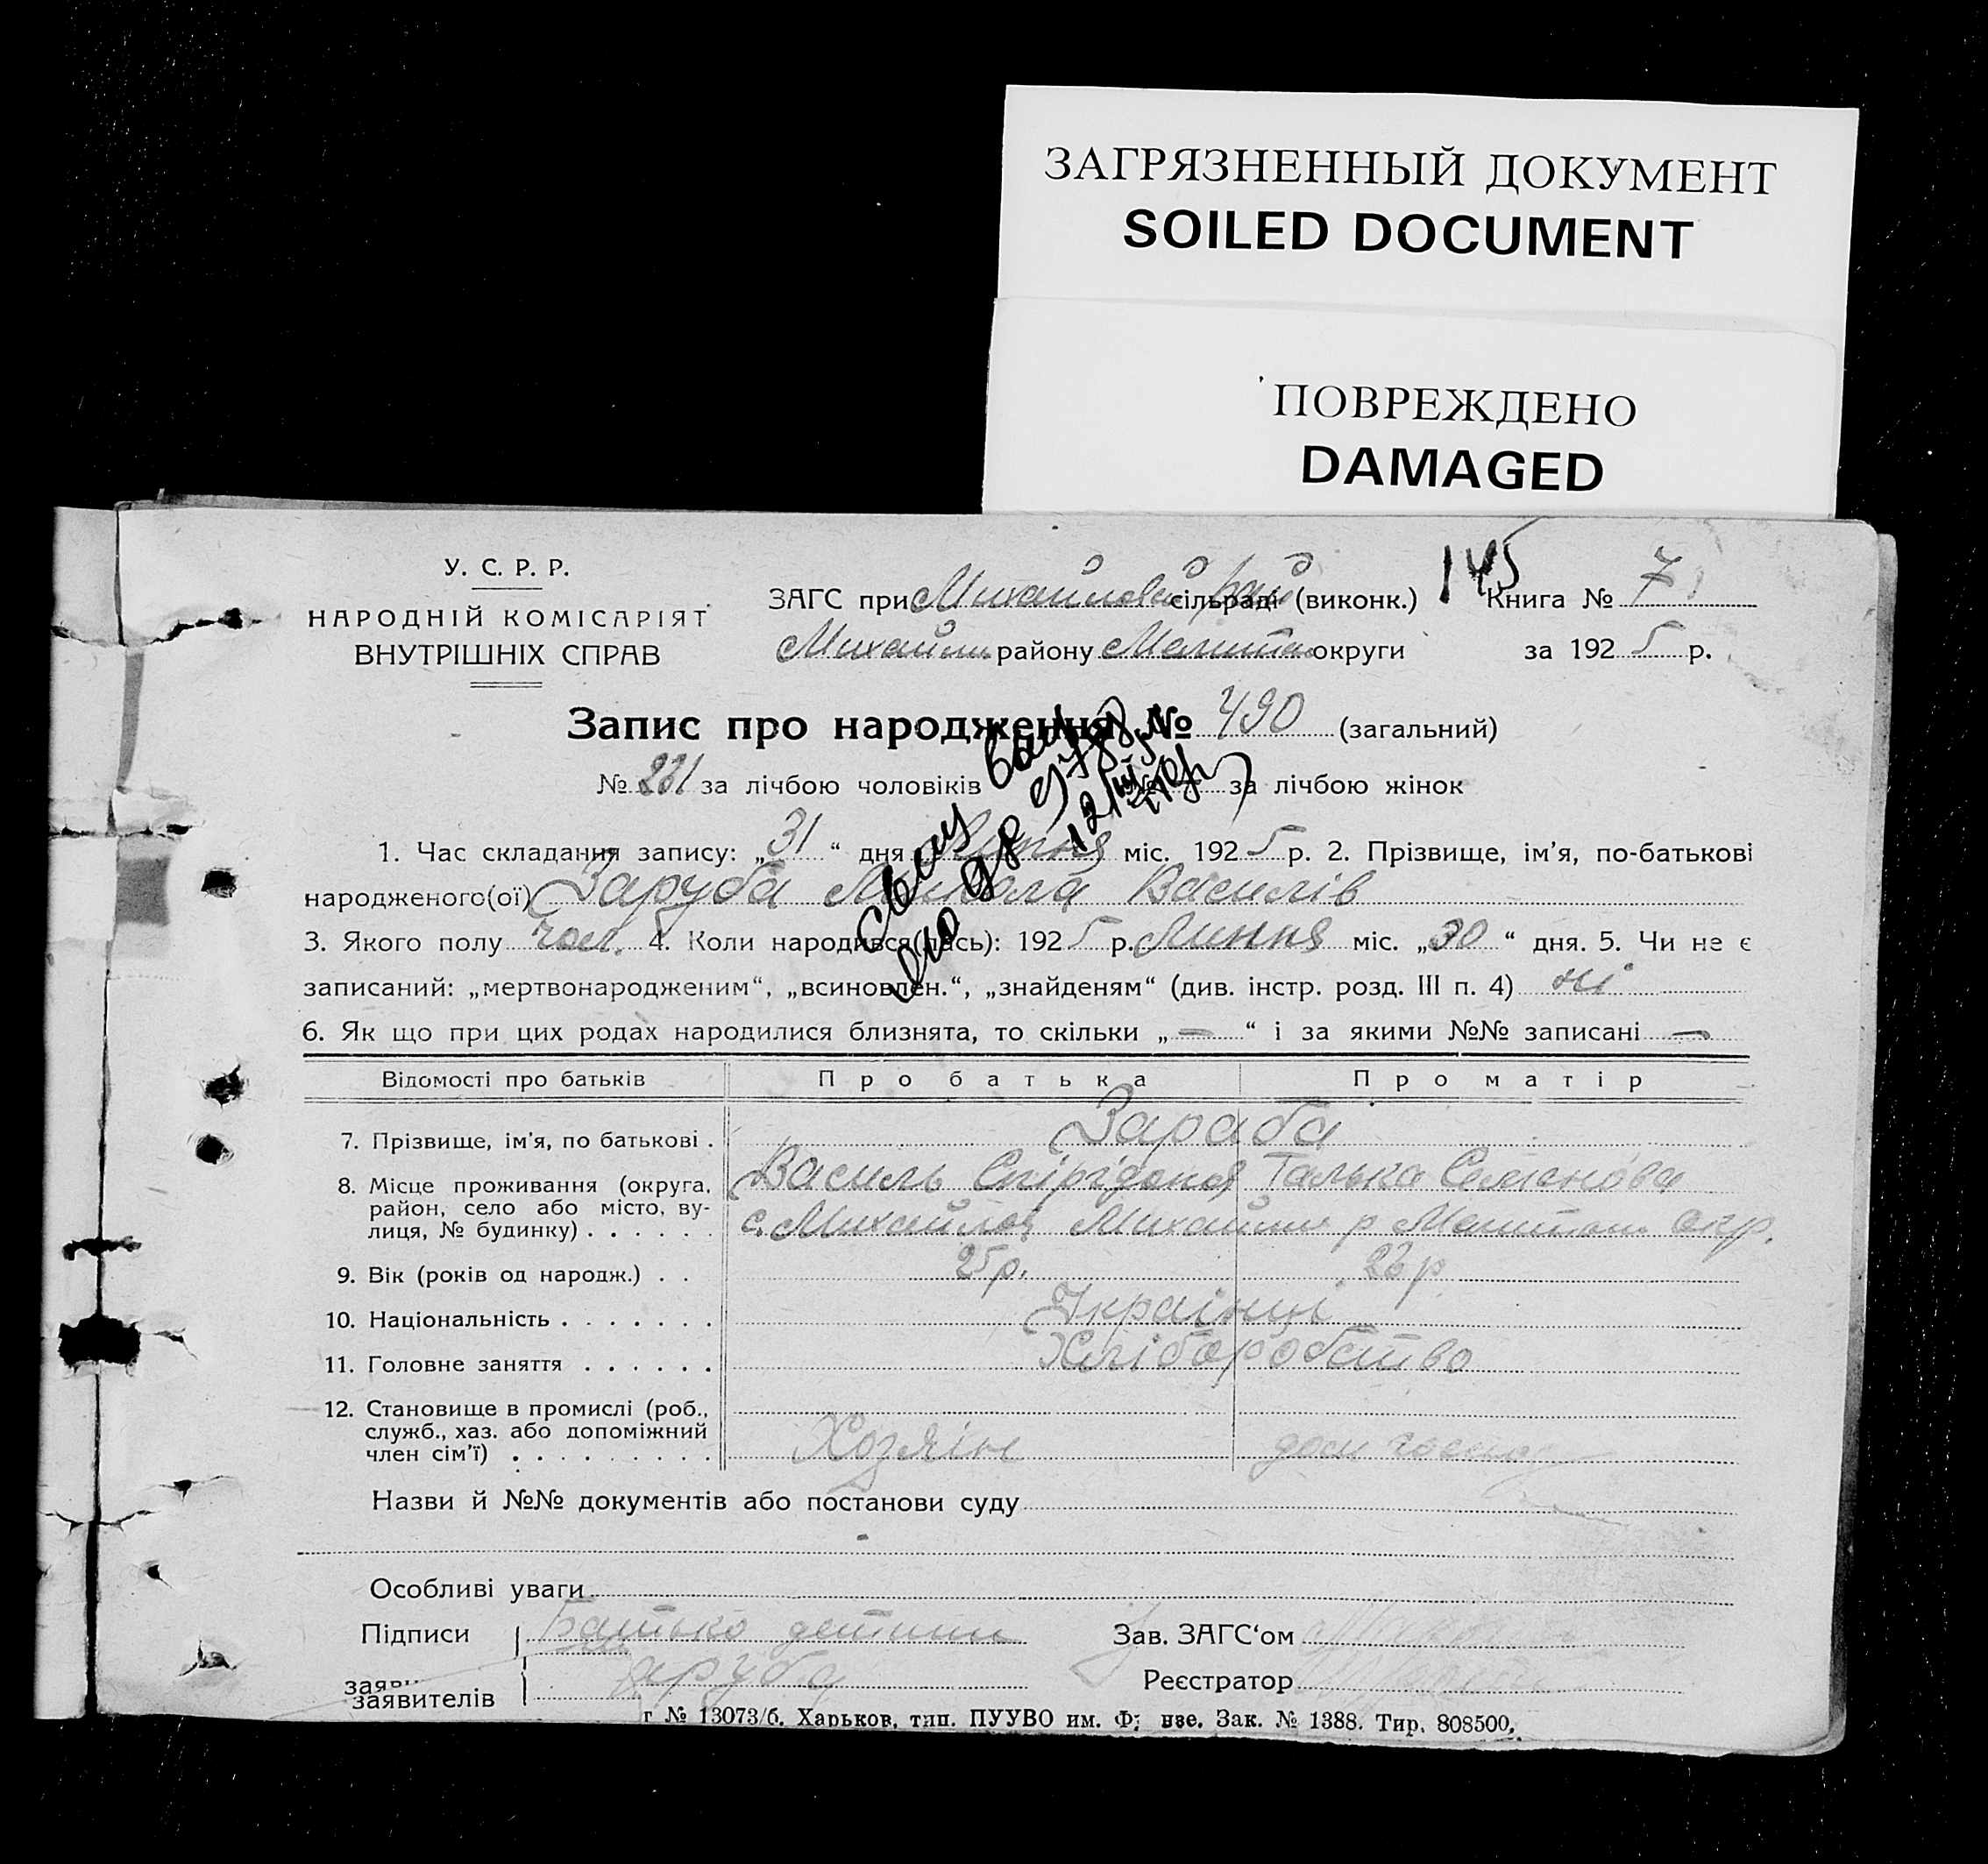 ЗАГРЯЗНЕННЫЙ ДОКУМЕНТ
SOILED DOCUMENT
ПОВРЕЖДЕНО
DAMAGED
У. С. Р. Р.
НАРОДНІЙ КОМІСАРІЯТ
ВНУТРІШНІХ СПРАВ
145
ЗАГС при Михайловськ сільраді (виконк.) Книга № 7
Михайлов району Мелитоп округи за 1925 р.
Запис про народження № 490 (загальний)
№ 231 за лічбою чоловіків № за лічбою жінок
1. Час складання запису: „31“ дня Липня міс. 1925 р. 2. Прізвище, ім’я, по-батькові
народженого(ої) Заруба Микола Василів
3. Якого полу чол. 4. Коли народився(лась): 1925 р. Липня міс. „30“ дня. 5. Чи не є
записаний: „мертвонародженим“, „всиновлен.“, „знайденям“ (див. інстр. розд. III п. 4) ні
6. Як що при цих родах народилися близнята, то скільки „—“ і за якими №№ записані —
Відомості про батьків Про батька Про матір
7. Прізвище, ім’я, по батькові . Зараба
Василь Спірідонов Галька Семенова
8. Місце проживання (округа,
район, село або місто, ву-
лиця, № будинку) . . . . . . с. Михайлов Михайлів р Мелитоп окр.
9. Вік (років од народж.) . . 25 р. 23 р
10. Національність . . . . . . . Українці
11. Головне заняття . . . . . . Хліборобство
12. Становище в промислі (роб.,
служб., хаз. або допоміжний
член сім’ї) . . . . . . . . . Хозяін дом
Назви й №№ документів або постанови суду
Особливі уваги
Підписи Батько детини Зав. ЗАГС‘ом
аруба Реєстратор
заяви
заявителів
г № 13073/б. Харьков, тип. ПУУВО им. Ф; нзе. Зак. № 1388. Тир. 808500.